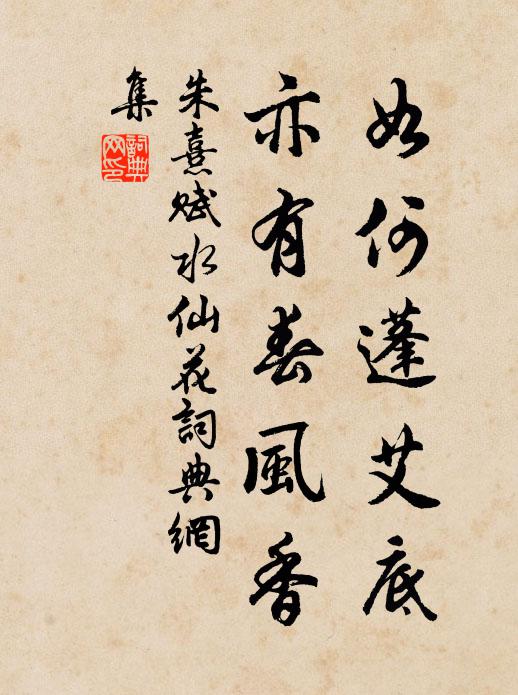 如何蓬艾底
亦有春風香
朱熹賦水仙花詞典網
集
詞典
网印